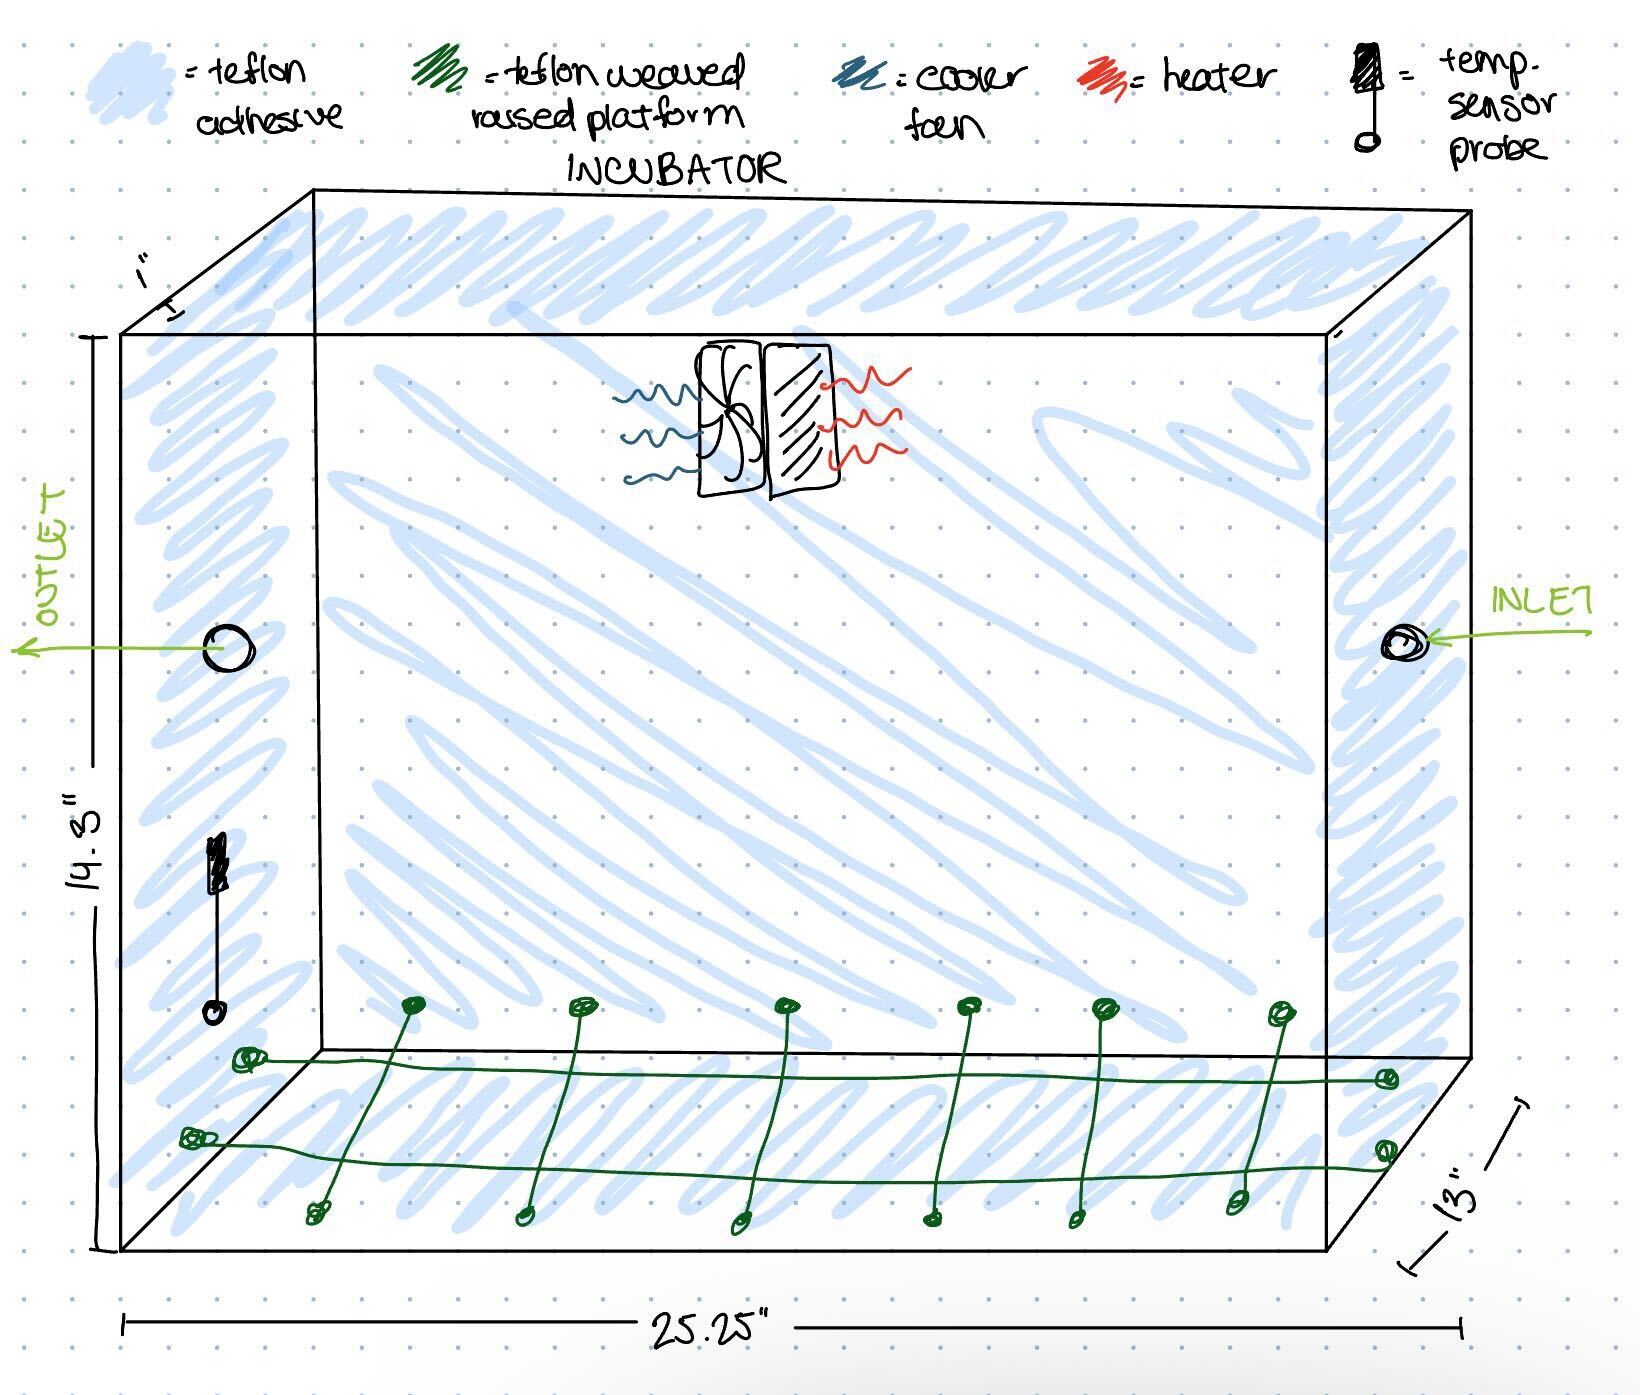 = teflon
adhesive
= teflon weaved
raised platform
= cooler
fan
= heater
= temp.
sensor
probe
INCUBATOR
1"
OUTLET
INLET
14.8"
13"
25.25"